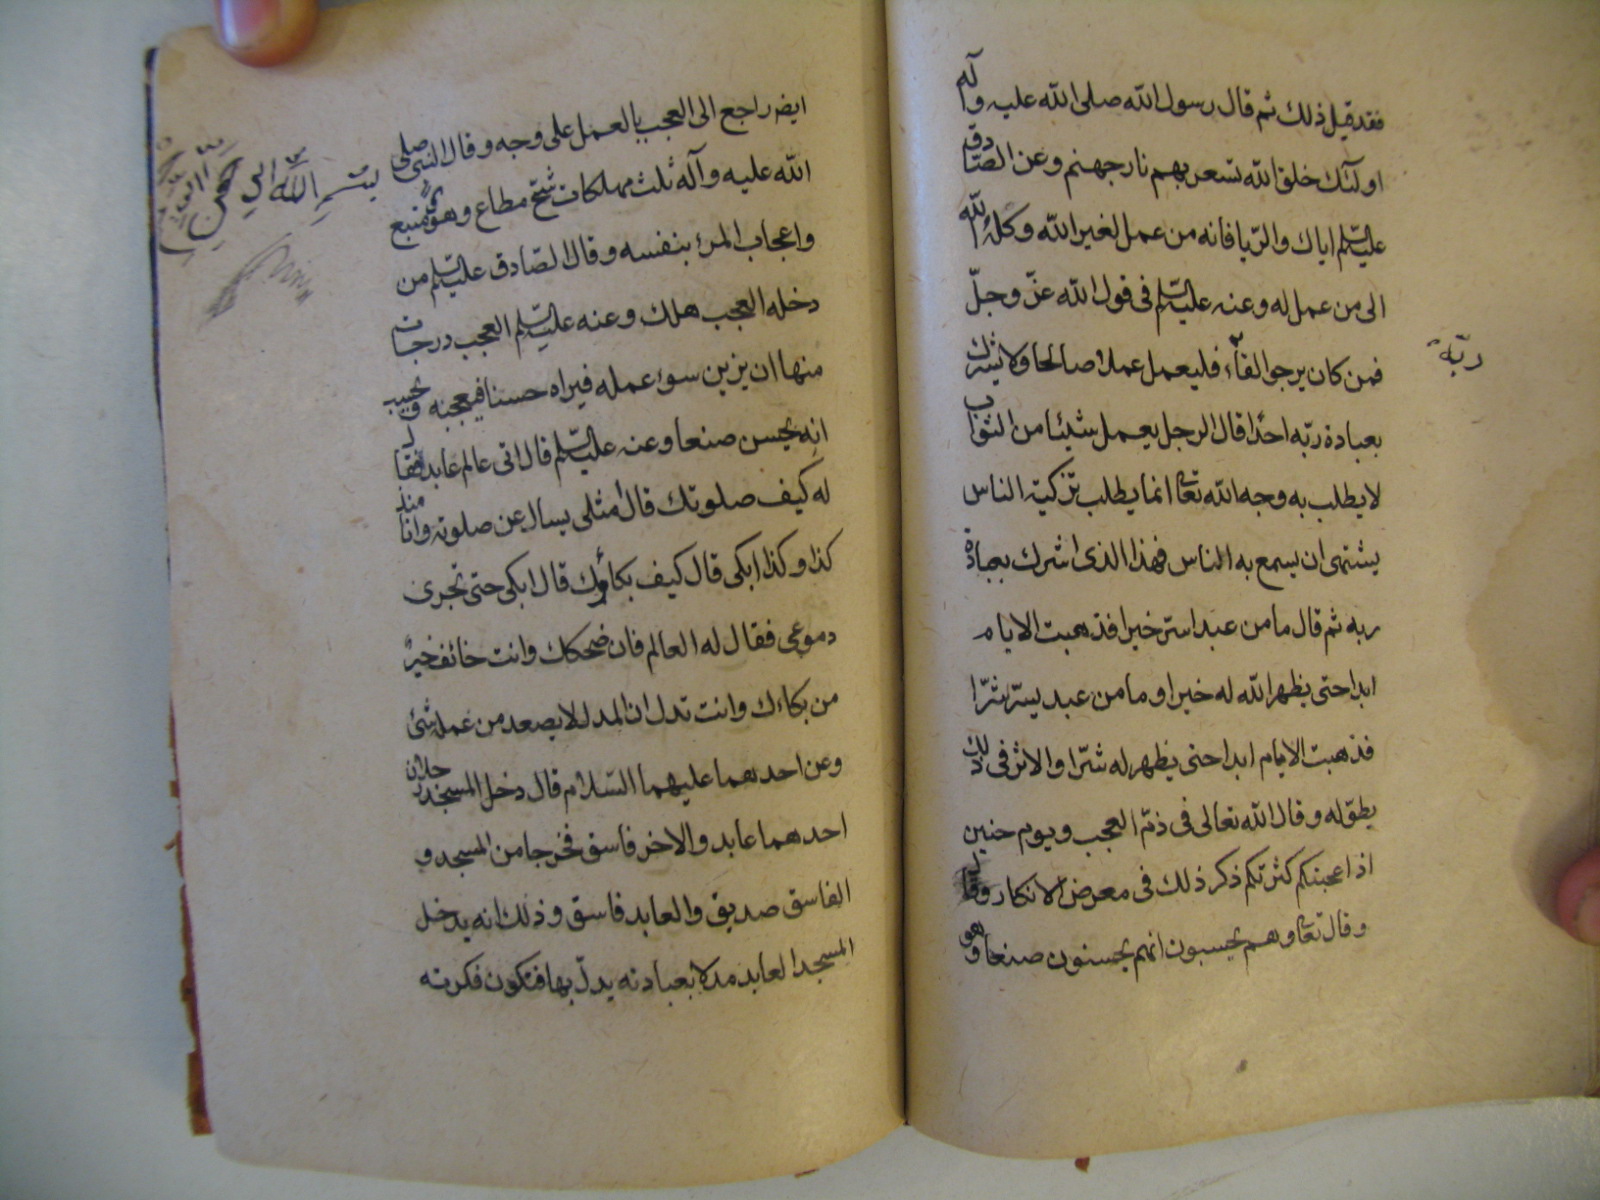 فقد قيل ذلك ثم قال رسول الله صلى الله عليه وآله
اولئك خلق الله تسعر بهم نار جهنم وعن الصادق
عليه السلم اياك والريا فانه من عمل لغير الله وكله الله
الى من عمل له وعنه عليه السلم فى قول الله عز وجل
فمن كان يرجو القآء فليعمل عملا صالحا ولا يشرك
ربه
بعبادة ربه احدا قال الرجل يعمل شيئا من الثواب
لا يطلب به وجه الله تعا انما يطلب تزكية الناس
يشتهى ان يسمع به الناس فهذا الذى اشرك بعبادة
ربه ثم قال ما من عبد استر خيرا فذهبت الايام
ابدا حتى يظهر الله له خيرا وما من عبد يستر شرّا
فذهبت الايام ابدا حتى يظهر له شرّا والاثر فى ذلك
يطول وقال الله تعالى فى ذمّ العجب ويوم حنين
اذ اعجبتكم كثرتكم ذكر ذلك فى معرض الانكار وقال
وقال تعا وهم يحسبون انهم يحسنون صنعا وهو
ايض راجع الى العجب بالعمل على وجه وقال النبى صلى
الله عليه وآله ثلث مهلكات شح مطاع وهوى متبع
واعجاب المرء بنفسه وقال الصادق عليه السلم من
دخله العجب هلك وعنه عليه السلم العجب درجات
منها ان يزين سوء عمله فيراه حسنا فيعجبه ويحسب
انه يحسن صنعا وعنه عليه السلم قال اتى عالم عابد فقال
له كيف صلوتك قال أمثلى يسال عن صلوته وانا منذ
كذا وكذا ابكى قال كيف بكاؤك قال ابكى حتى تجرى
دموعى فقال له العالم فان ضحكك وانت خائف خير
من بكاءك وانت تدل ان المدل لا يصعد من عمله شئ
وعن احدهما عليهما السلام قال دخل المسجد رجلان
احدهما عابد والاخر فاسق فخرجا من المسجد و
الفاسق صديق والعابد فاسق وذلك انه يدخل
المسجد العابد مدلا بعبادته يدلّ بها فتكون فكرته
بسم الله الرحمن